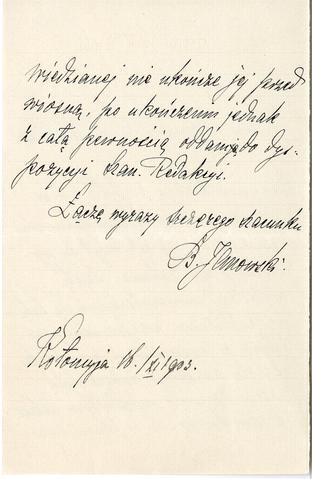 wiedzianej nie ukończę jej przed
wiosną, po ukończeniu jednak
z całą pewnością oddam ją do dys-
pozycyi Szan. Redakcyi.
Łączę wyrazy szczerego szacunku
B. Janowski.
Kołomyja 16./XI 1903.